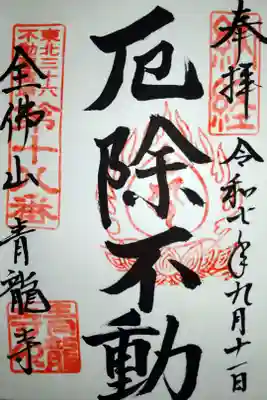 奉拝
令和七年九月十一日
厄除不動
東北三十六
不動
第十八番
全佛山 青龍寺
青龍